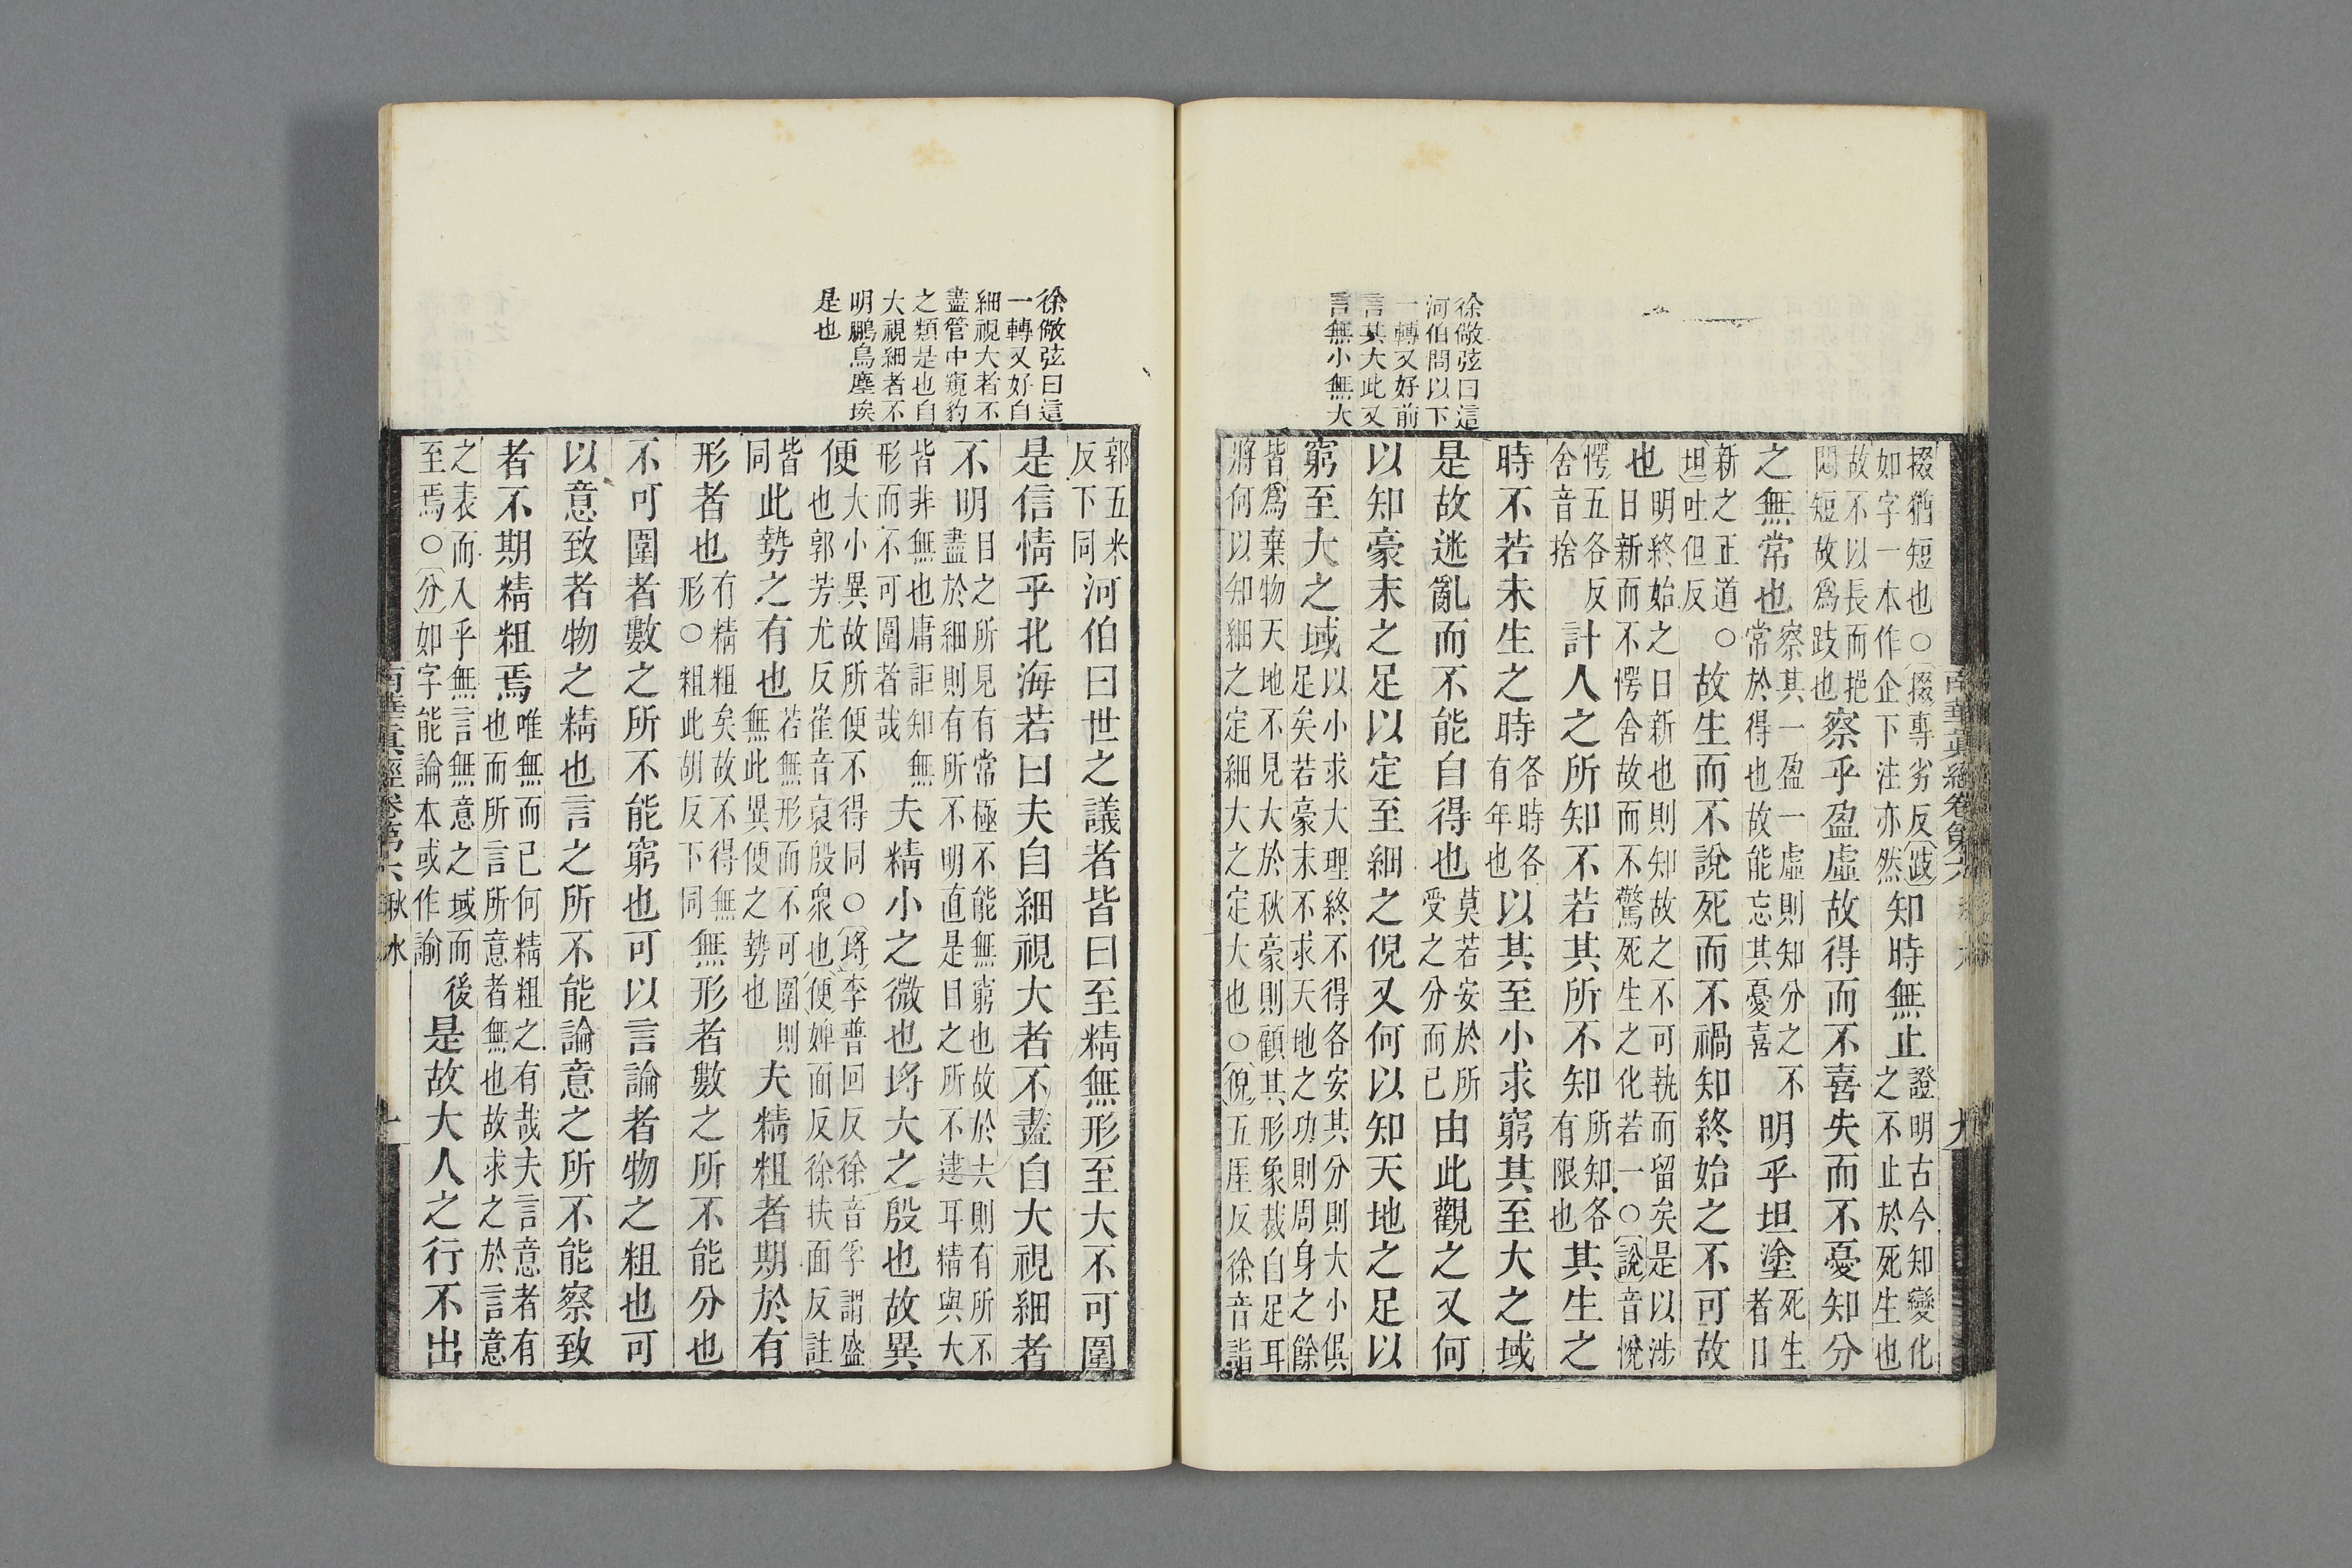 徐儆弦曰這
河伯問以下
一轉又好前
言其大此又
言無小無大
掇猶短也○掇專劣反跂如字一本作企下注亦然知時無止證明古今知變化之不止於死生也
故不以長而挹悶短故爲跂也察乎盈虛故得而不喜失而不憂知分
之無常也察其一盈一虛則知分之不常於得也故能忘其憂喜明乎坦塗死生者日
新之正道○坦吐但反故生而不說死而不禍知終始之不可故
也明終始之日新也則知故之不可執而留矣是以涉日新而不愕舍故而不驚死生之化若一○說音悅
愕五各反舍音捨計人之所知不若其所不知所知各有限也其生之
時不若未生之時各時各有年也以其至小求窮其至大之域
是故迷亂而不能自得也莫若安於所受之分而已由此觀之又何
以知豪末之足以定至細之倪又何以知天地之足以
窮至大之域以小求大理終不得各安其分則大小俱足矣若豪末不求天地之功則周身之餘
皆爲棄物天地不見大於秋豪則顧其形象裁自足耳將何以知細之定細大之定大也○倪五厓反徐音詣
徐儆弦曰這
一轉又好自
細視大者不
盡管中窺豹
之類是也自
大視細者不
明鵬鳥塵埃
是也
郭五米反下同河伯曰世之議者皆曰至精無形至大不可圍
是信情乎北海若曰夫自細視大者不盡自大視細者
不明目之所見有常極不能無窮也故於大則有所不盡於細則有所不明直是目之所不逮耳精與大
皆非無也庸詎知無形而不可圍者哉夫精小之微也垺大之殷也故異
便大小異故所便不得同○垺李普回反徐音孚謂盛也郭芳尤反崔音裒殷衆也便婢面反徐扶面反註
皆同此勢之有也若無形而不可圍則無此異便之勢也夫精粗者期於有
形者也有精粗矣故不得無形○粗此胡反下同無形者數之所不能分也
不可圍者數之所不能窮也可以言論者物之粗也可
以意致者物之精也言之所不能論意之所不能察致
者不期精粗焉唯無而已何精粗之有哉夫言意者有也而所言所意者無也故求之於言意
之表而入乎無言無意之域而後至焉○分如字能論本或作諭是故大人之行不出
南華眞經卷第六 秋水